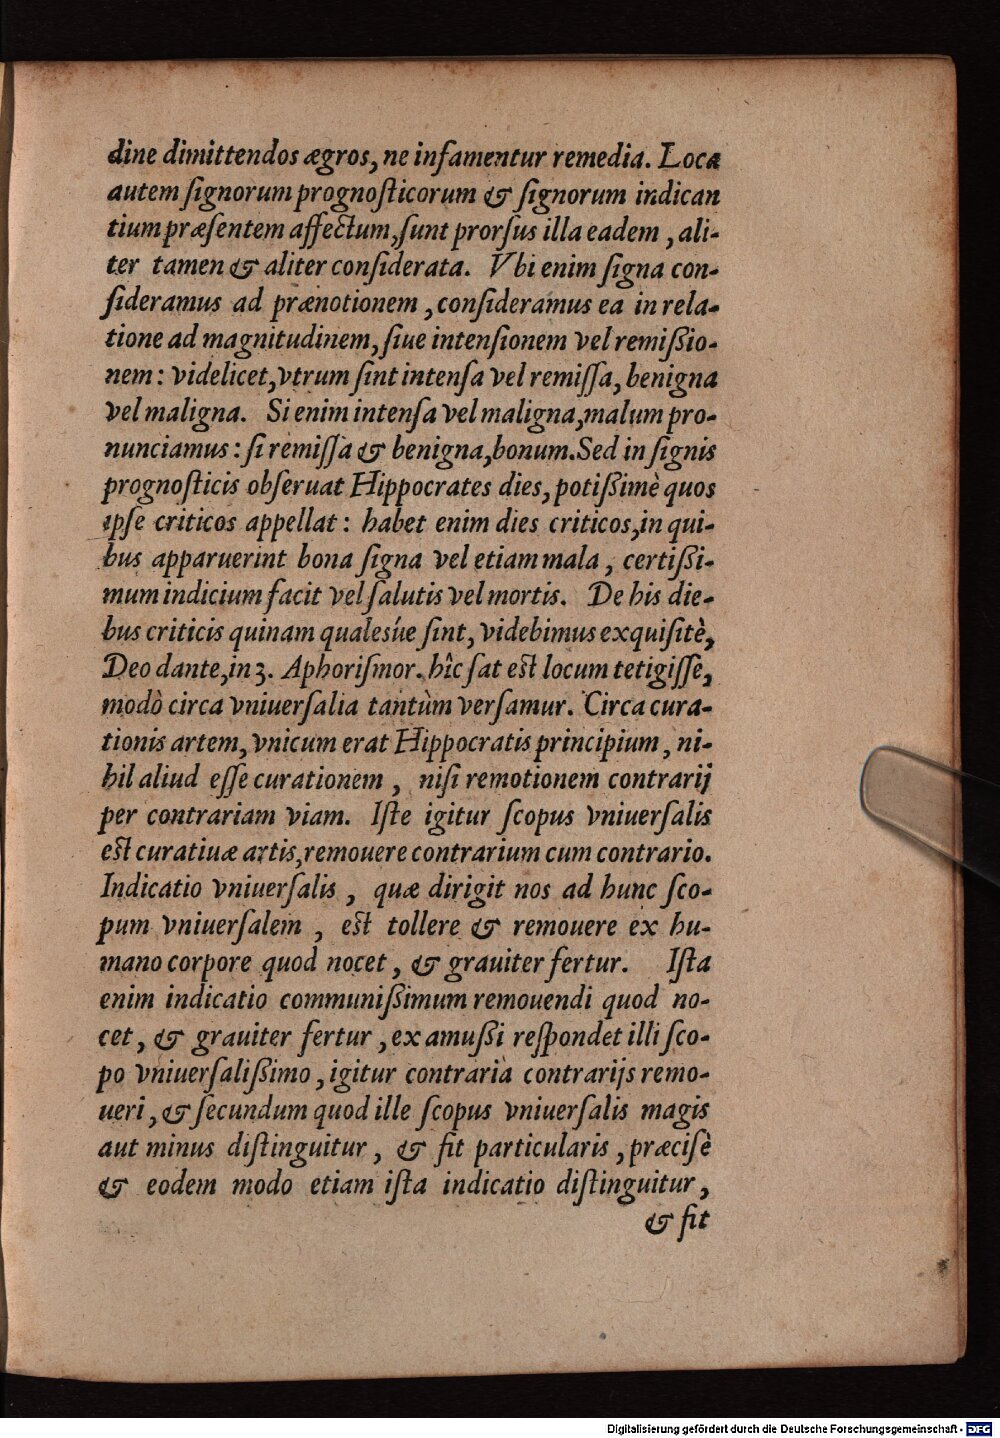 dine dimittendos ægros, ne infamentur remedia. Loca
autem ſignorum prognoſticorum & ſignorum indican
tium præſentem affectum, ſunt prorſus illa eadem, ali-
ter tamen & aliter conſiderata. Vbi enim ſigna con-
ſideramus ad prænotionem, conſideramus ea in rela-
tione ad magnitudinem, ſiue intenſionem vel remißio-
nem: videlicet, vtrum ſint intenſa vel remiſſa, benigna
vel maligna. Si enim intenſa vel maligna, malum pro-
nunciamus: ſi remiſſa & benigna, bonum. Sed in ſignis
prognoſticis obſeruat Hippocrates dies, potißimè quos
ipſe criticos appellat: habet enim dies criticos, in qui-
bus apparuerint bona ſigna vel etiam mala, certißi-
mum indicium facit vel ſalutis vel mortis. De his die-
bus criticis quinam qualesúe ſint, videbimus exquiſitè,
Deo dante, in 3. Aphoriſmor. hîc ſat eſt locum tetigiſſe,
modò circa vniuerſalia tantùm verſamur. Circa cura-
tionis artem, vnicum erat Hippocratis principium, ni-
hil aliud eſſe curationem, niſi remotionem contrarij
per contrariam viam. Iſte igitur ſcopus vniuerſalis
eſt curatiuæ artis, remouere contrarium cum contrario.
Indicatio vniuerſalis, quæ dirigit nos ad hunc ſco-
pum vniuerſalem, eſt tollere & remouere ex hu-
mano corpore quod nocet, & grauiter fertur. Iſta
enim indicatio communißimum remouendi quod no-
cet, & grauiter fertur, ex amußi reſpondet illi ſco-
po vniuerſalißimo, igitur contraria contrarijs remo-
ueri, & ſecundum quod ille ſcopus vniuerſalis magis
aut minus diſtinguitur, & fit particularis, præciſè
& eodem modo etiam iſta indicatio diſtinguitur,
& fit
Digitalisierung gefördert durch die Deutsche Forschungsgemeinschaft - DFG